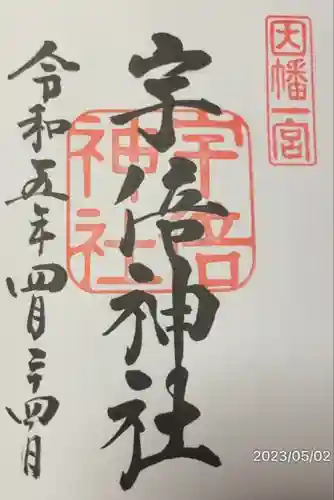 因幡一宮
宇倍神社
宇倍
神社
令和五年四月二十四日
2023/05/02